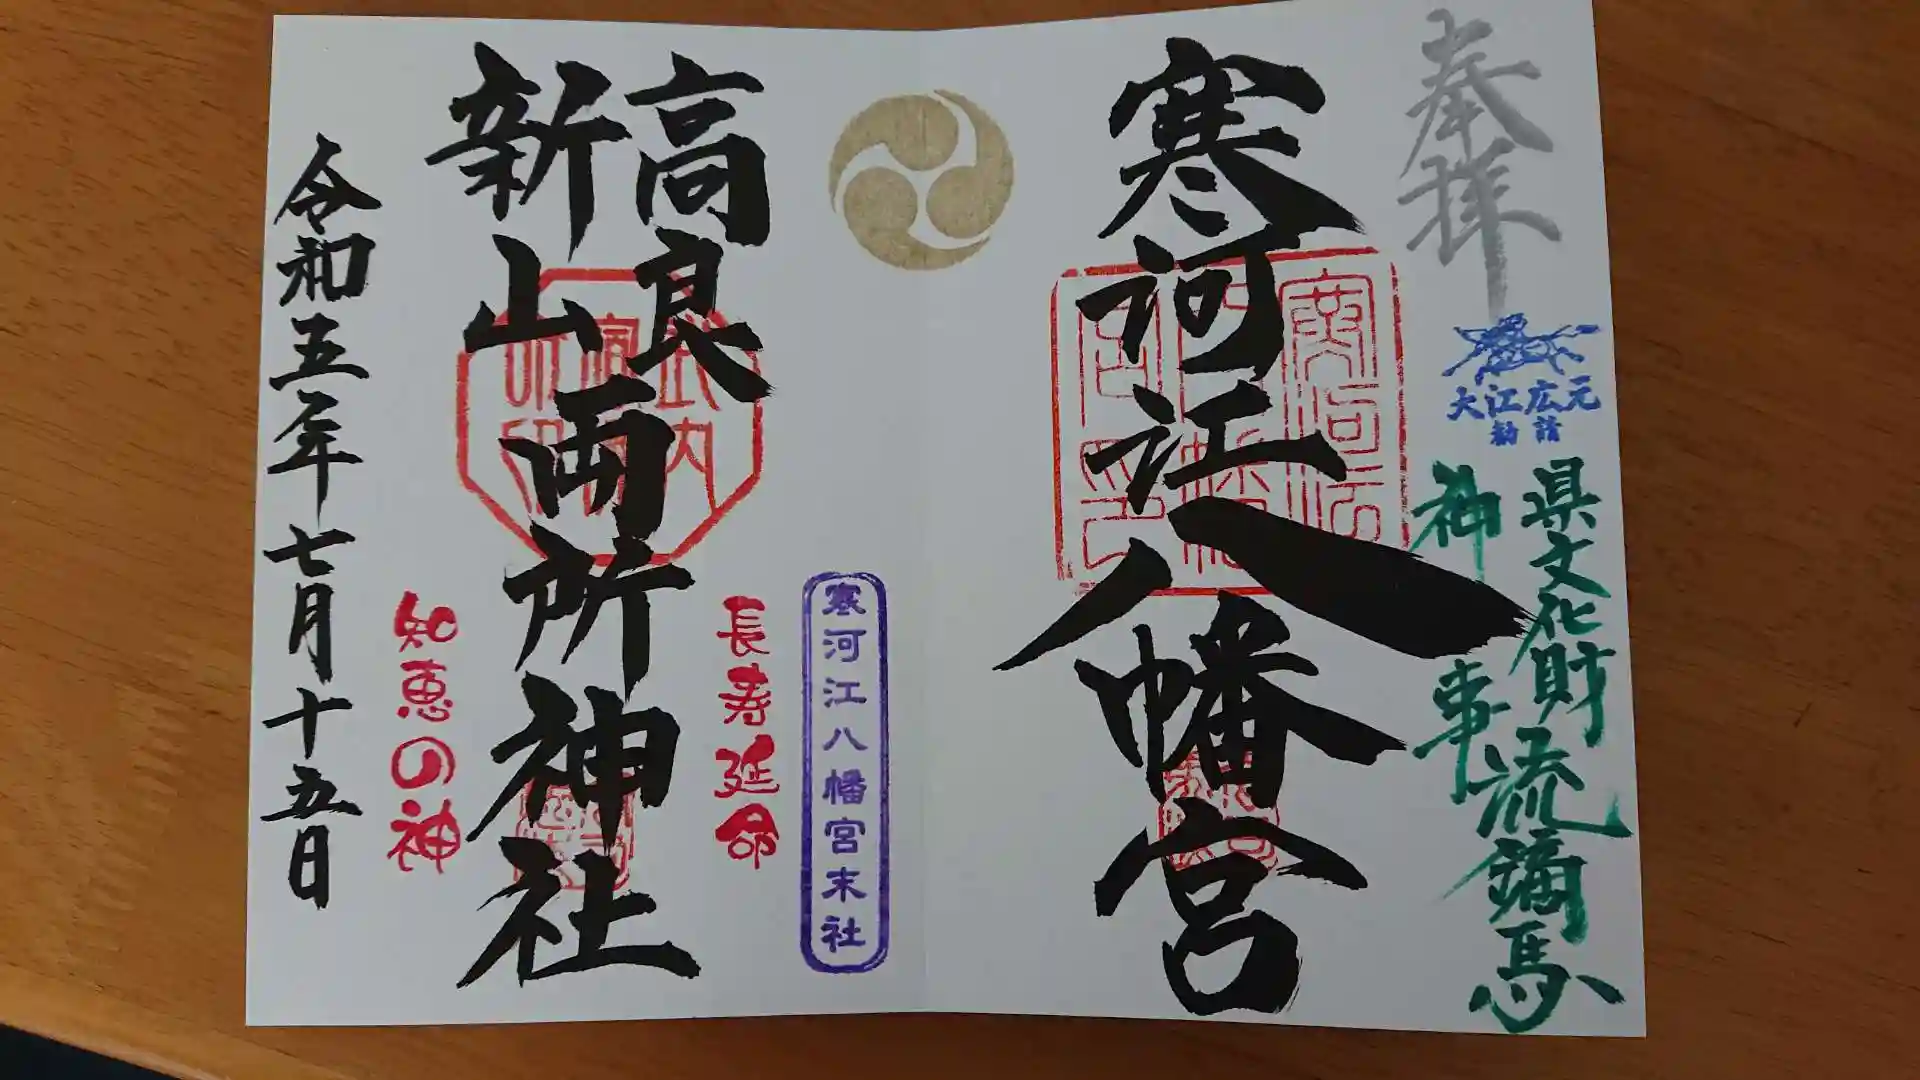 奉拝
大江広元
勧請
県文化財流鏑馬
神事
寒河江八幡宮
寒河江八幡宮末社
長寿延命
高良
新山両所神社
知恵の神
令和五年七月十五日